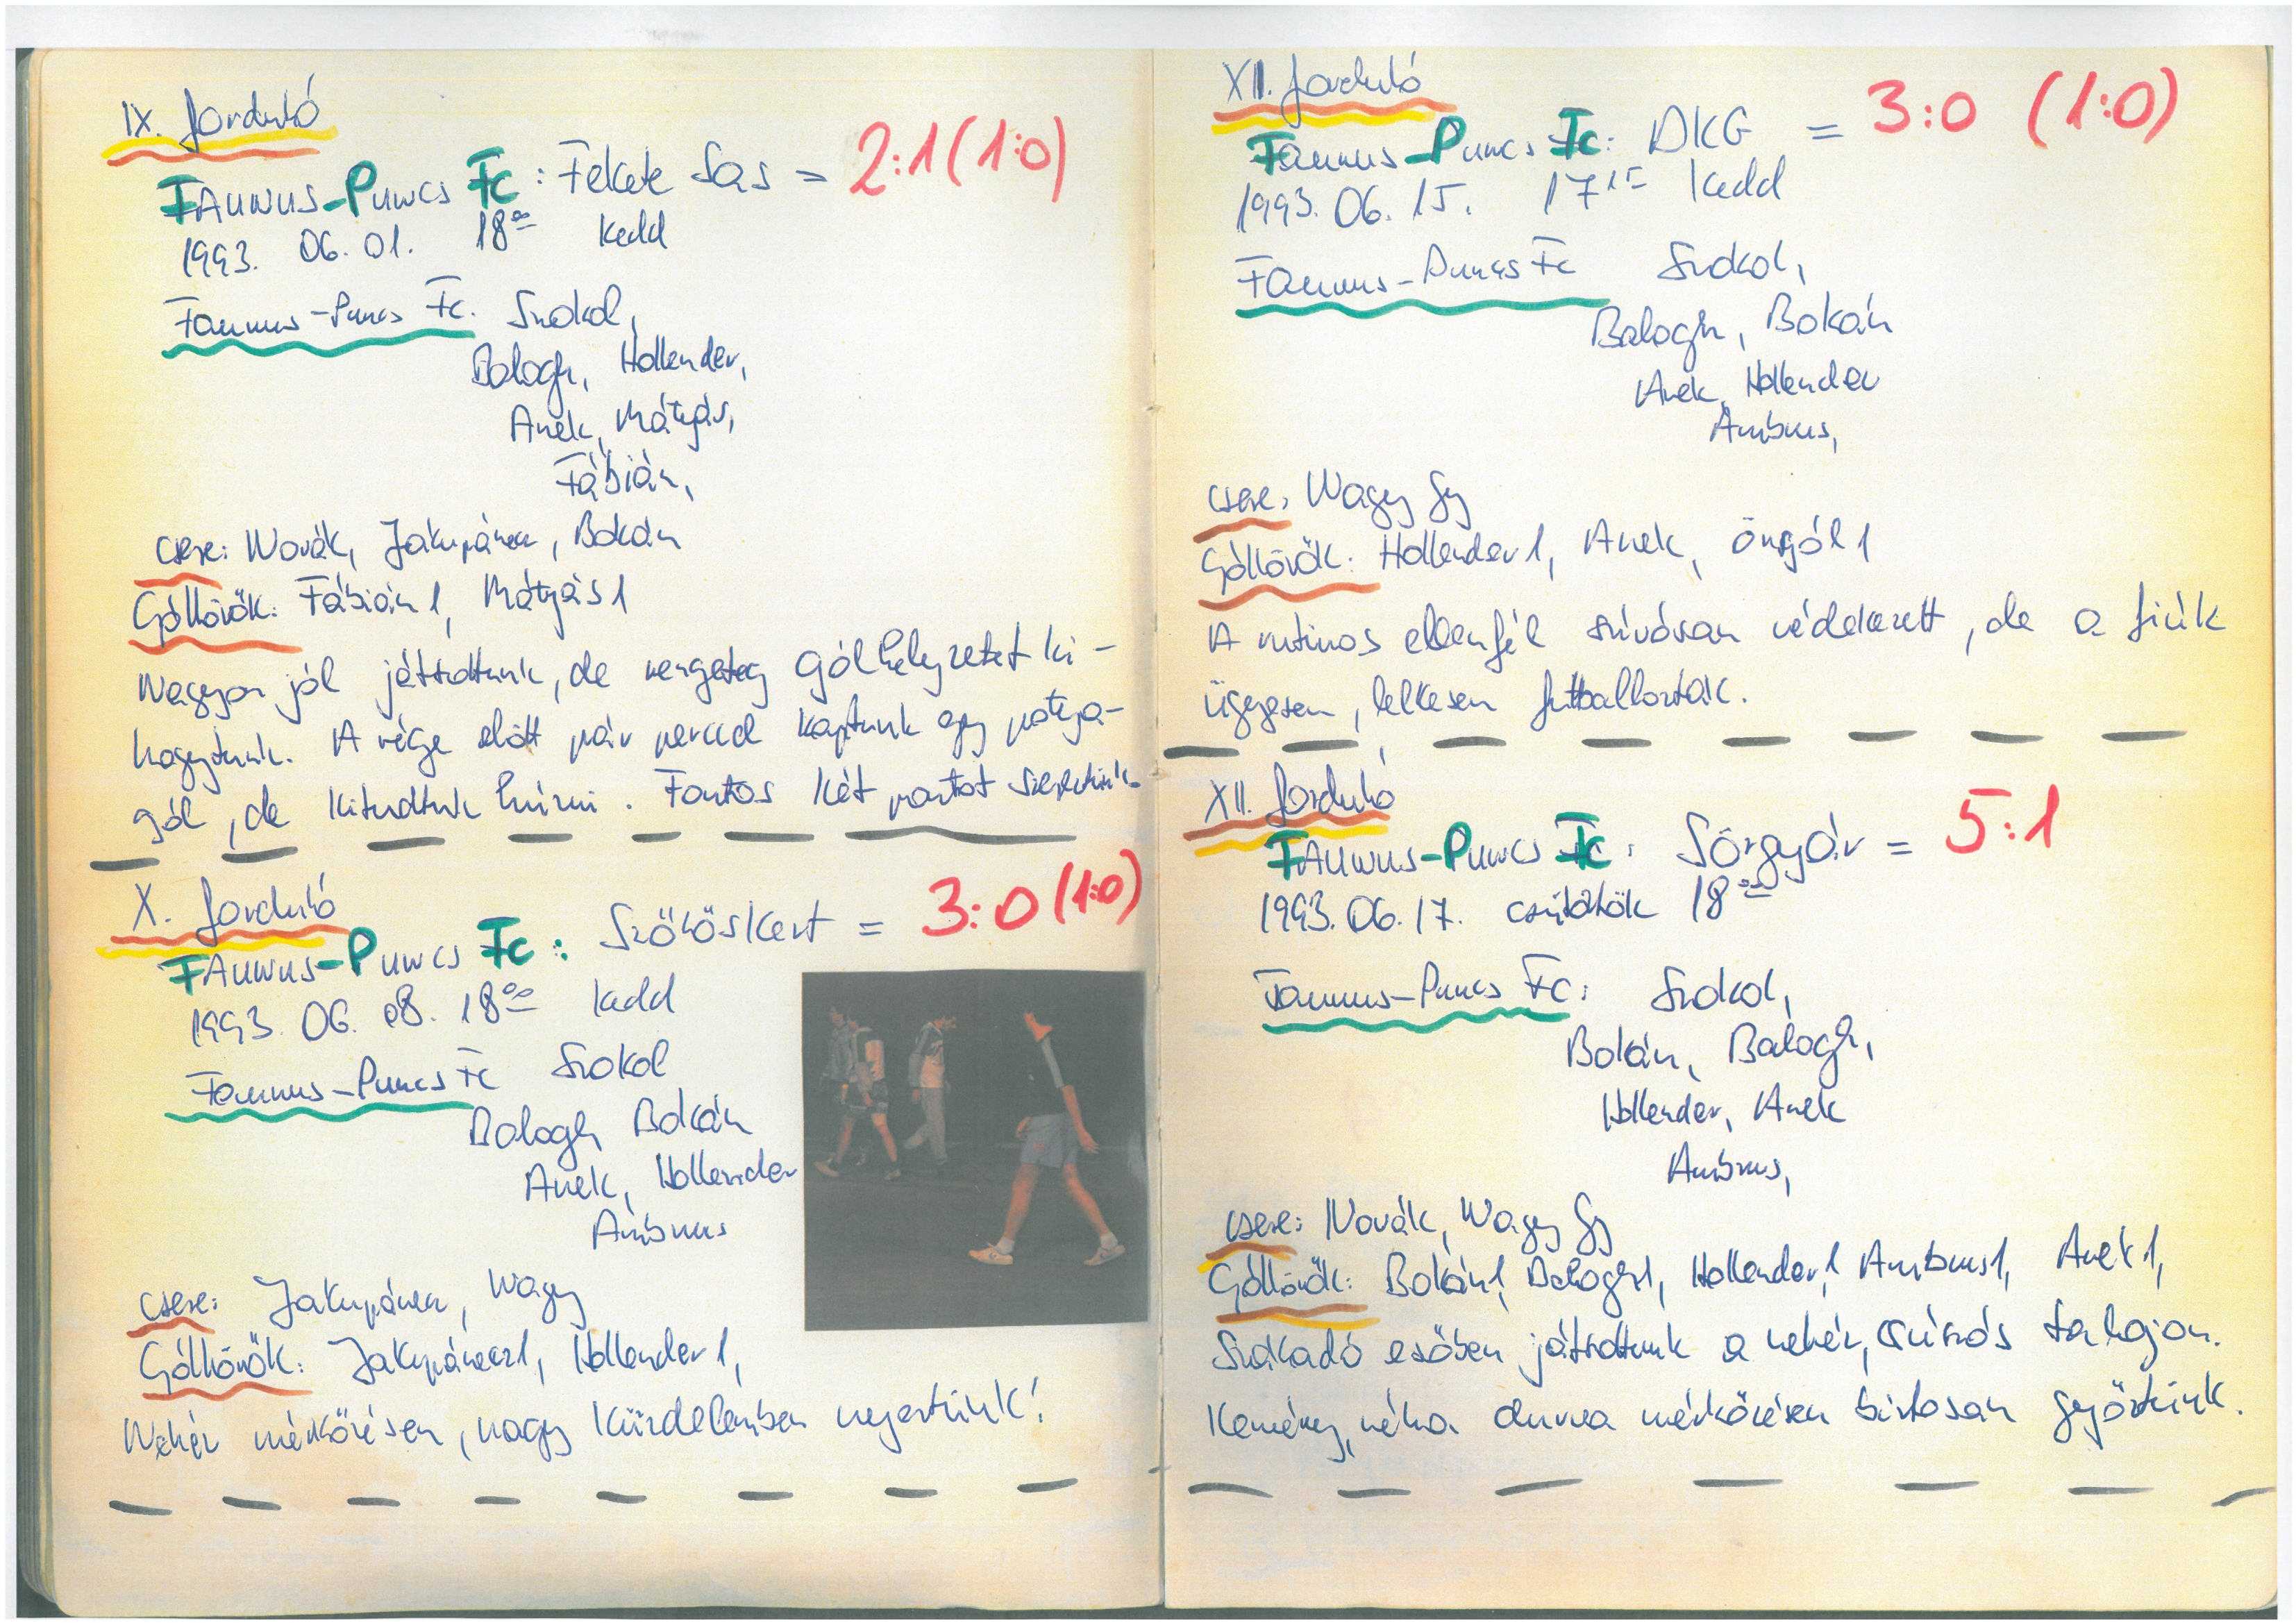 IX. forduló
FAUNUS-PUNCS FC: Fekete Sas = 2:1 (1:0)
1993. 06. 01. 18⁰⁰ kedd
Faunus-Puncs Fc. Szokol,
Balogh, Hollender,
Anek, Mátyás,
Fábián,
csere: Novák, Jakupánecz, Bokán
Góllövők: Fábián 1, Mátyás 1
Nagyon jól játszottunk, de rengeteg gólhelyzetet ki-
hagytunk. A vége előtt pár perccel kaptunk egy potya-
gól, de kitudtuk húzni. Fontos két pontot szereztünk.
X. forduló
FAUNUS-PUNCS FC: Szököskert = 3:0 (1:0)
1993. 06. 08. 18⁰⁰ kedd
Faunus-Puncs Fc Szokol
Balogh, Bokán
Anek, Hollender
Ambrus
csere: Jakupánecz, Nagy
Góllövők: Jakupánecz 1, Hollender 1,
Nehéz mérkőzésen, nagy küzdelemben nyertünk!
XI. forduló
Faunus-Puncs Fc: DKG = 3:0 (1:0)
1993. 06. 15. 17¹⁵ kedd
Faunus-Puncs Fc Szokol,
Balogh, Bokán
Anek, Hollender
Ambrus,
csere: Nagy Gy
Góllövők: Hollender 1, Anek, öngól 1
A rutinos ellenfél szívósan védekezett, de a fiúk
ügyesen, lelkesen futballoztak.
XII. forduló
FAUNUS-PUNCS FC: Sörgyár = 5:1
1993. 06. 17. csütörtök 18⁰⁰
Faunus-Puncs Fc: Szokol,
Bokán, Balogh,
Hollender, Anek
Ambrus,
csere: Novák, Nagy Gy
Góllövők: Bokán 1, Balogh 1, Hollender 1, Ambrus 1, Anek 1,
Szakadó esőben játszottunk a nehéz, csúszós talajon.
Kemény, néha durva mérkőzésen biztosan győztünk.